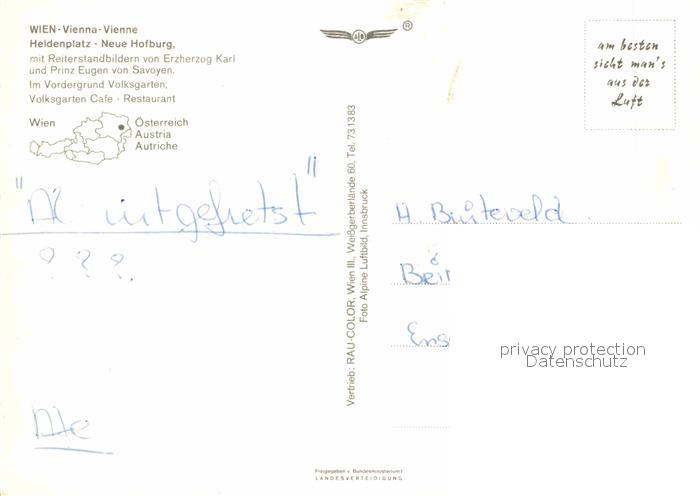 WIEN - Vienna - Vienne
Heldenplatz - Neue Hofburg,
mit Reiterstandbildern von Erzherzog Karl
und Prinz Eugen von Savoyen.
Im Vordergrund Volksgarten;
Volksgarten Cafe - Restaurant
Wien
Österreich
Austria
Autriche
®
am besten
sieht man's
aus der
Luft
"Al uitgefietst"
? ? ?.
Ate
Vertrieb: RAU-COLOR, Wien III., Weißgerberlände 60, Tel. 731383
Foto Alpine Luftbild, Innsbruck
H. Buiteveld
Ens
privacy protection
Datenschutz
Freigegeben v. Bundesministerium f.
LANDESVERTEIDIGUNG